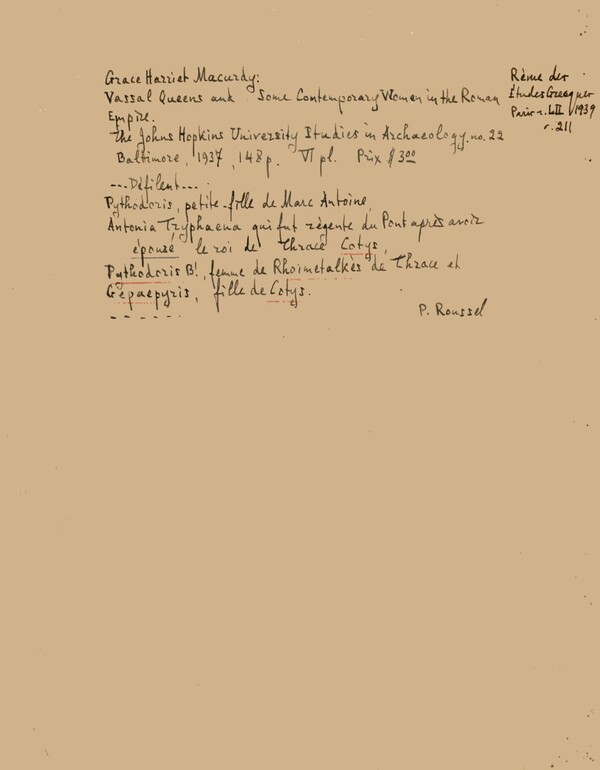 Grace Harriet Macurdy:
Vassal Queens and Some Contemporary Women in the Roman
Empire.
The Johns Hopkins University Studies in Archaeology. no. 22
Baltimore, 1937, 148 p. VI pl. Prix $ 3.00
---Défilent---
Pythodoris, petite-fille de Marc Antoine,
Antonia Tryphaena qui fut régente du Pont après avoir
épousé le roi de Thrace Cotys,
Pythodoris B!, femme de Rhoimetalkès de Thrace et
Gepaepyris, fille de Cotys.
------
P. Roussel
Études Grecques
Paris LII 1939
211